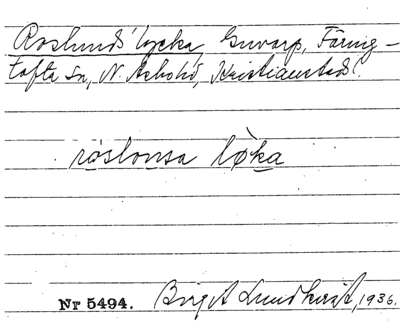 Roslunds lycka, Gnvarp, Färing-
tofta sn, N. Åsbohd, Kristianstads l.
röslonsa lø̀ka
Nr 5494. Birgit Lundkvist, 1936.